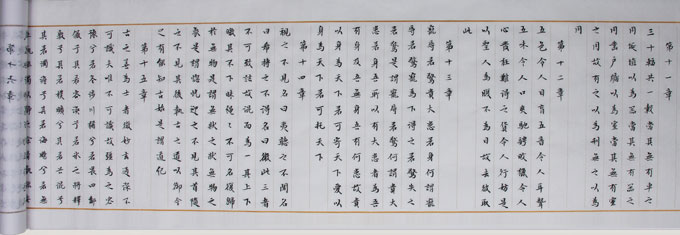 第十一章
三十輻共一轂當其無有車之
用埏埴以為器當其無有器之
用鑿戶牖以為室當其無有室
之用故有之以為利無之以為
用
第十二章
五色令人目盲五音令人耳聾
五味令人口爽馳騁畋獵令人
心發狂難得之貨令人行妨是
以聖人為腹不為目故去彼取
此
第十三章
寵辱若驚貴大患若身何謂寵
辱若驚寵為下得之若驚失之
若驚是謂寵辱若驚何謂貴大
患若身吾所以有大患者為吾
有身及吾無身吾有何患故貴
以身為天下若可寄天下愛以
身為天下若可托天下
第十四章
視之不見名曰夷聽之不聞名
曰希搏之不得名曰微此三者
不可致詰故混而為一其上不
皦其下不昧繩繩不可名復歸
於無物是謂無狀之狀無物之
象是謂惚恍迎之不見其首隨
之不見其後執古之道以御今
之有能知古始是謂道紀
第十五章
古之善為士者微妙玄通深不
可識夫唯不可識故強為之容
豫兮若冬涉川猶兮若畏四鄰
儼兮其若容渙兮若冰之將釋
敦兮其若樸曠兮其若谷混兮
其若濁澹兮其若海飂兮若無
第十六章